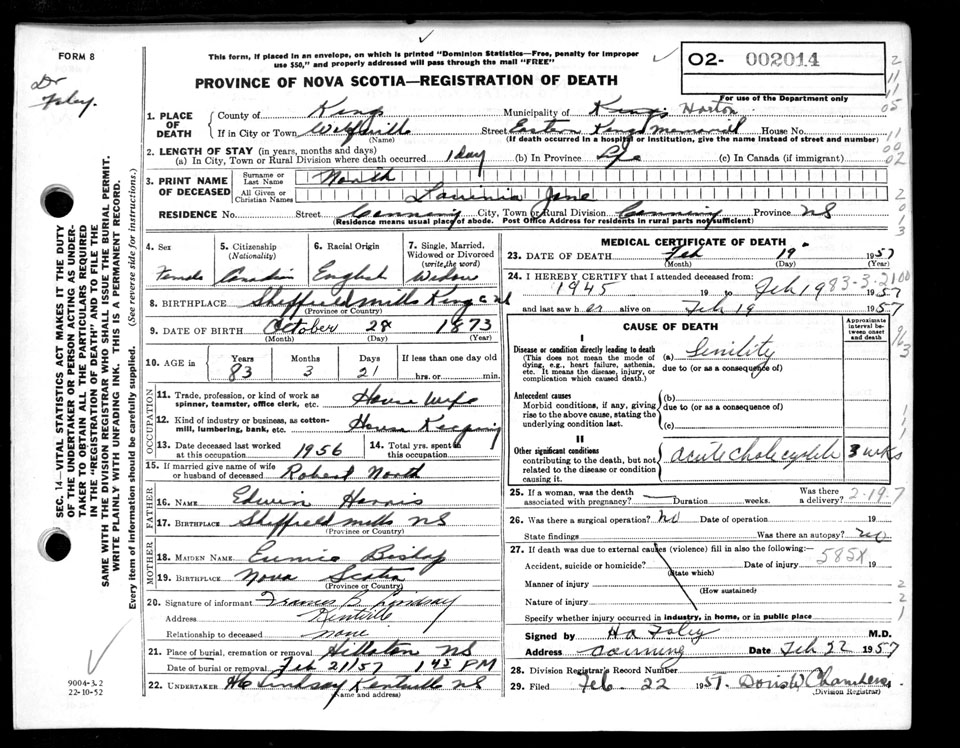 FORM 8
Dr
Foley.
This form, if placed in an envelope, on which is printed "Dominion Statistics—Free, penalty for improper
use $50," and properly addressed will pass through the mail "FREE"
PROVINCE OF NOVA SCOTIA—REGISTRATION OF DEATH
O2- 002014
For use of the Department only
1. PLACE OF DEATH
County of Kings
Municipality of Kings Horton
If in City or Town Wolfville
(Name)
Street Eastern Kings Memorial House No.
(If death occurred in a hospital or institution, give the name instead of street and number)
2. LENGTH OF STAY (in years, months and days)
(a) In City, Town or Rural Division where death occurred 1 Day (b) In Province Life (c) In Canada (if immigrant)
3. PRINT NAME OF DECEASED
Surname or Last Name North
All Given or Christian Names Lavinia Jane
RESIDENCE No. Street Canning City, Town or Rural Division Canning Province NS
(Residence means usual place of abode. Post Office Address for residents in rural parts not sufficient)
4. Sex
Female
5. Citizenship
(Nationality)
Canadian
6. Racial Origin
English
7. Single, Married, Widowed or Divorced
(write the word)
Widow
8. BIRTHPLACE Sheffield Mills Kings Co NS
(Province or Country)
9. DATE OF BIRTH October 28 1873
(Month) (Day) (Year)
10. AGE in
Years Months Days If less than one day old
83 3 21 hrs. or min.
OCCUPATION
11. Trade, profession, or kind of work as spinner, teamster, office clerk, etc. House Wife
12. Kind of industry or business, as cotton-mill, lumbering, bank, etc. House Keeping
13. Date deceased last worked at this occupation 1956
14. Total yrs. spent in this occupation
15. If married give name of wife or husband of deceased Robert North
FATHER
16. NAME Edwin Harris
17. BIRTHPLACE Sheffield Mills NS
(Province or Country)
MOTHER
18. MAIDEN NAME Eunice
19. BIRTHPLACE Nova Scotia
(Province or Country)
20. Signature of informant Francis B Lindsay
Address Kentville
Relationship to deceased none
21. Place of burial, cremation or removal Hillaton NS
Date of burial or removal Feb 21/57 1 45 PM
22. UNDERTAKER Lindsay Kentville NS
(Name and address)
MEDICAL CERTIFICATE OF DEATH
23. DATE OF DEATH Feb 19 1957
(Month) (Day) (Year)
24. I HEREBY CERTIFY that I attended deceased from:
1945 19 to Feb 19 1957
83-3-21 00
and last saw her alive on Feb 19 1957
CAUSE OF DEATH
Approximate interval between onset and death
I
Disease or condition directly leading to death
(This does not mean the mode of dying, e.g., heart failure, asthenia, etc. It means the disease, injury, or complication which caused death.)
(a) Senility
due to (or as a consequence of)
Antecedent causes
Morbid conditions, if any, giving rise to the above cause, stating the underlying condition last.
(b)
due to (or as a consequence of)
(c)
II
Other significant conditions
contributing to the death, but not related to the disease or condition causing it.
acute cholecystitis 3 wks
25. If a woman, was the death associated with pregnancy? Duration weeks. Was there a delivery?
2-19-7
26. Was there a surgical operation? no Date of operation 19
State findings Was there an autopsy? no
27. If death was due to external causes (violence) fill in also the following:—
585X
Accident, suicide or homicide? Date of injury 19
(State which)
Manner of injury
(How sustained)
Nature of injury
Specify whether injury occurred in industry, in home, or in public place
Signed by H a Foley M.D.
Address Canning Date Feb 22 1957
28. Division Registrar's Record Number
29. Filed Feb. 22 1957 Doris W Chambers
Division Registrar
SEC. 14—VITAL STATISTICS ACT MAKES IT THE DUTY
OF THE UNDERTAKER OR PERSON ACTING AS UNDER-
TAKER TO OBTAIN ALL THE PARTICULARS REQUIRED
IN THE "REGISTRATION OF DEATH" AND TO FILE THE
SAME WITH THE DIVISION REGISTRAR WHO SHALL ISSUE THE BURIAL PERMIT.
WRITE PLAINLY WITH UNFADING INK. THIS IS A PERMANENT RECORD.
Every item of information should be carefully supplied. (See reverse side for instructions.)
9004-3.2
22-10-52